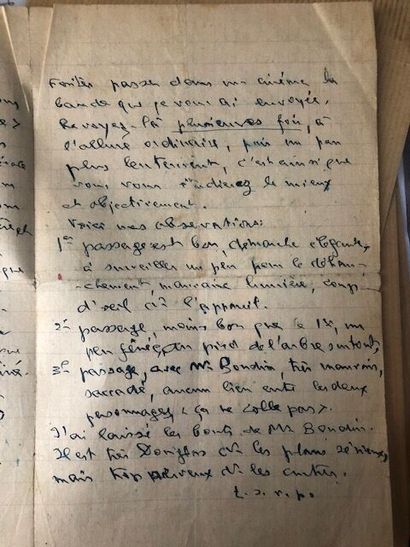 Faites passer dans un cinéma la
bande que je vous ai envoyée,
revoyez-la plusieurs fois, à
l'allure ordinaire, puis un peu
plus lentement, c'est ainsi que
vous vous étudierez le mieux
et objectivement.
Voici mes observations:
1er passage est bon, démarche élégante,
à surveiller un peu pour le
mauvaise lumière, coup
d'œil à l'appareil.
2e passage, moins bon que le 1er, un
peu gêné, au pied de l'arbre surtout,
3e passage, avec Mr Boudin, très mauvais,
saccadé, aucun lien entre les deux
personnages « ça ne colle pas ».
J'ai laissé les bouts de Mr Boudin.
Il est très les plans sérieux,
mais trop nerveux les autres.
t. s. v. p.